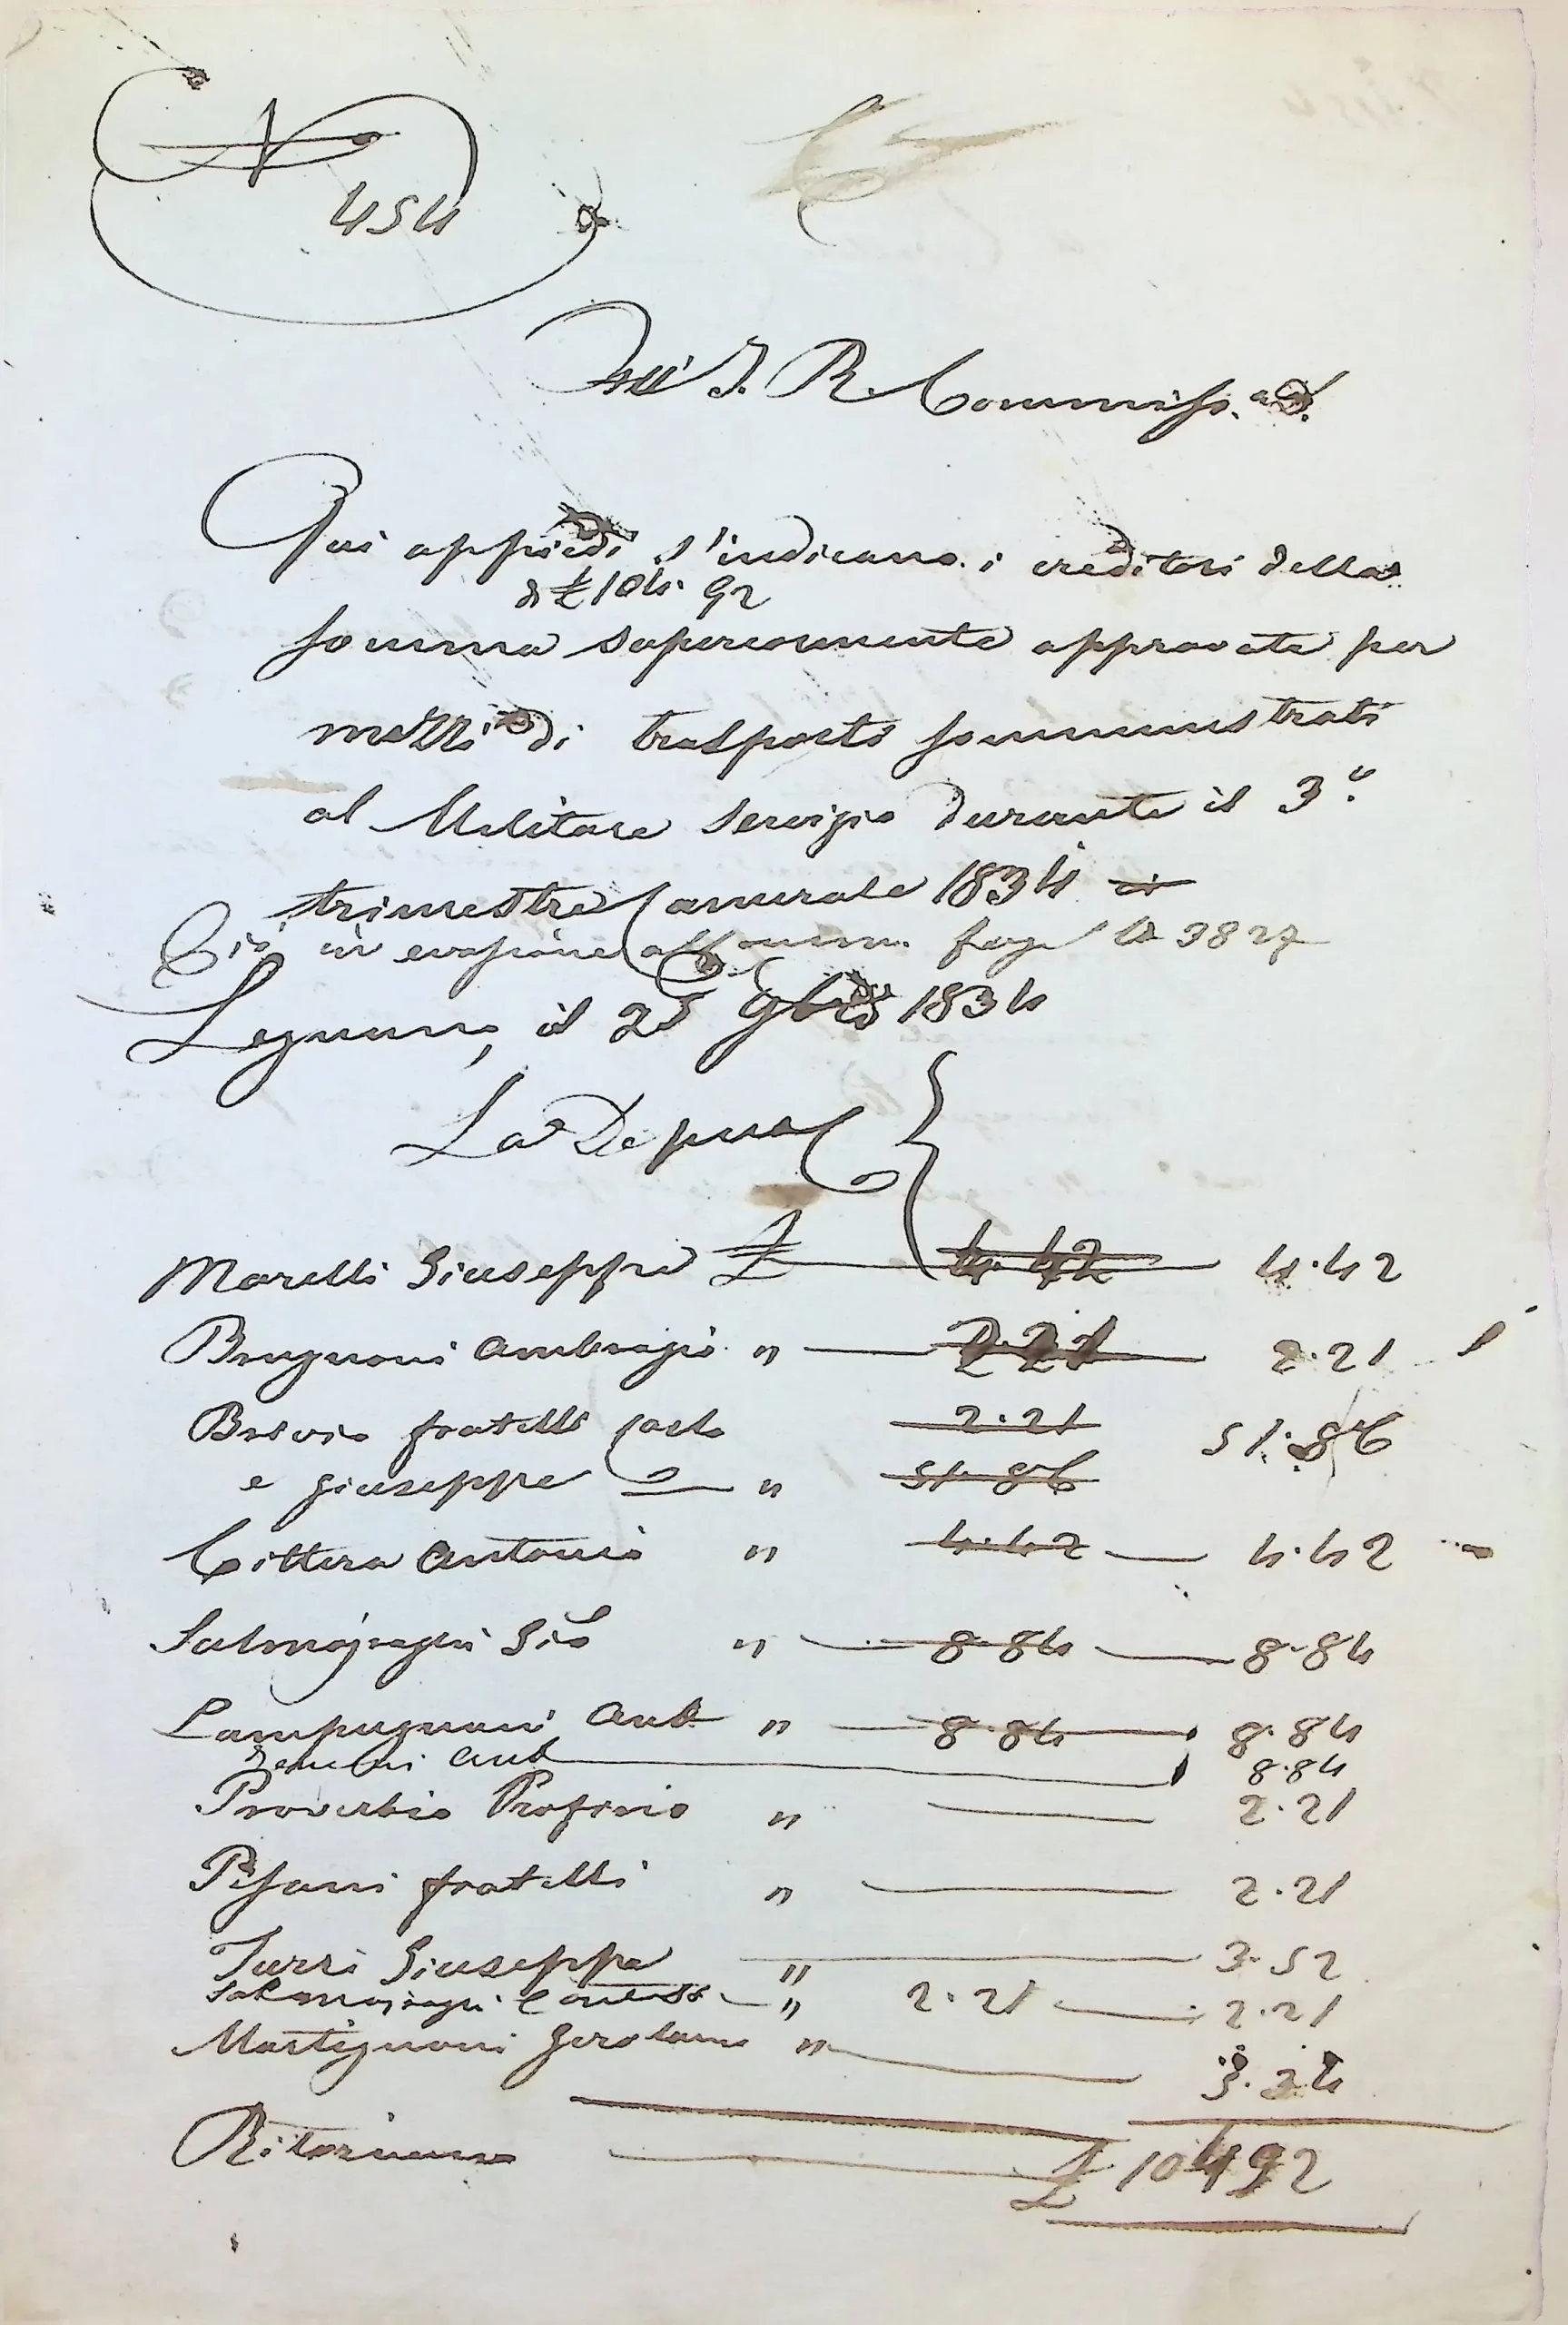 N
454
All' I. R. Commiss.
Qui appiedi s'indicano i creditori della
di £ 104. 92
somma superiormente approvata per
mezzi di trasporti somministrati
al Militare Servigio durante il 3.°
trimestre Camerale 1834
Ciò in evasione 3827
Legnano, il 25 9bre 1834
La Deputaz
Marelli Giuseppe £ 4.42 4.42
Brugnoni Ambrogio " 2.21 2.21
Brevio fratelli Carlo 2.21 51.86
e Giuseppe " 51.86
Cittera Antonio " 4.42 4.42
Salmojraghi Gio " 8.84 8.84
Lampugnani Ant " 8.84 8.84
Ant 8.84
Proverbio " 2.21
Pisani fratelli " 2.21
Turri Giuseppe " 3.52
Salmojraghi " 2.21 2.21
Martignoni Gerolamo " 3.34
Ritornano £ 10492